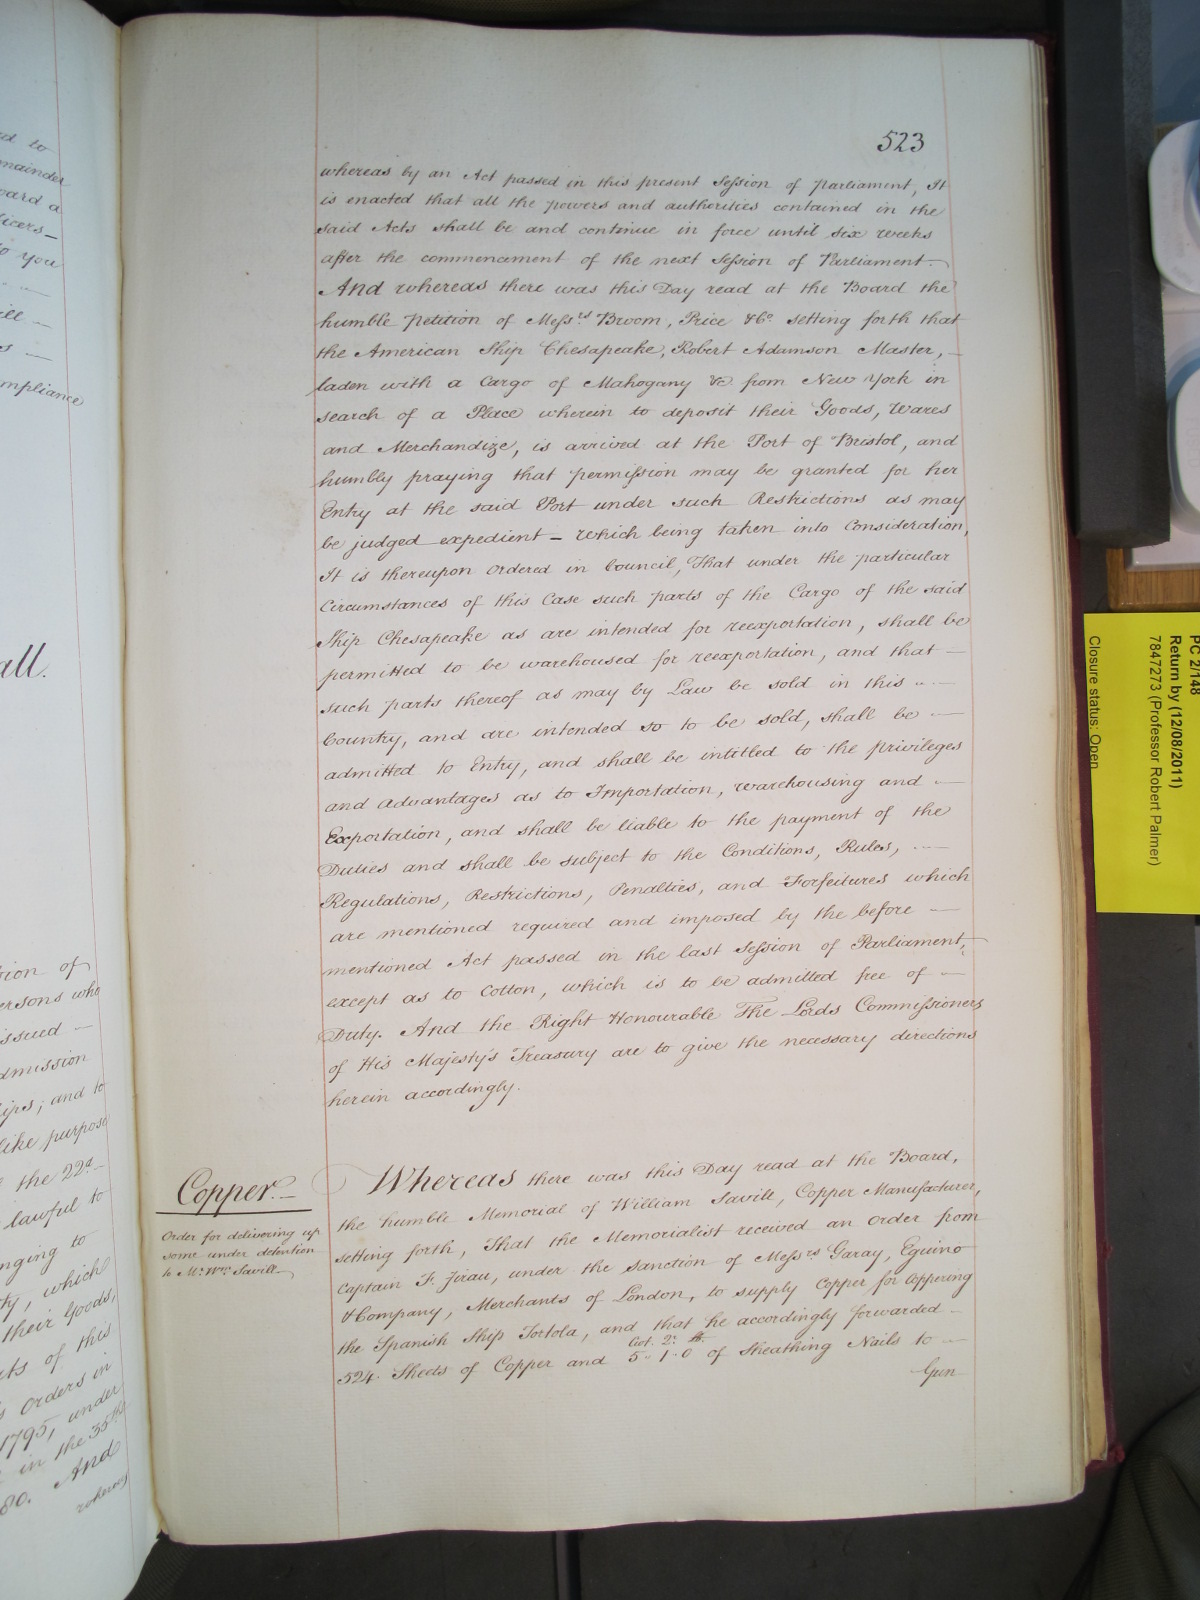 523
whereas by an Act passed in this present Session of Parliament, It
is enacted that all the powers and authorities contained in the
said Acts shall be and continue in force until six weeks
after the commencement of the next Session of Parliament.
And whereas there was this Day read at the Board the
humble petition of Messrs Broom, Price &Co. setting forth that
the American Ship Chesapeake, Robert Adamson Master, —
laden with a Cargo of Mahogany &c. from New York in
search of a Place wherein to deposit their Goods, Wares
and Merchandize, is arrived at the Port of Bristol, and
humbly praying that permission may be granted for her
Entry at the said Port under such Restrictions as may
be judged expedient — Which being taken into Consideration,
It is thereupon Ordered in Council, That under the particular
Circumstances of this Case such parts of the Cargo of the said
Ship Chesapeake as are intended for reexportation, shall be
permitted to be warehoused for reexportation, and that —
such parts thereof as may by Law be sold in this
Country, and are intended so to be sold, shall be —
admitted to Entry, and shall be intitled to the privileges
and Advantages as to Importation, warehousing and —
Exportation, and shall be liable to the payment of the
Duties and shall be subject to the Conditions, Rules,
Regulations, Restrictions, Penalties, and Forfeitures which
are mentioned required and imposed by the before —
mentioned Act passed in the last Session of Parliament,
except as to Cotton, which is to be admitted free of —
Duty. And the Right Honourable The Lords Commissioners
of His Majesty's Treasury are to give the necessary directions
herein accordingly.
Copper. —
Order for delivering up
some under detention
to Mr. Wm. Savill —
Whereas there was this Day read at the Board,
the humble Memorial of William Savill, Copper Manufacturer,
setting forth, That the Memorialist received an Order from
Captain F. Jirau, under the sanction of Messrs Garay, Eguino
&Company, Merchants of London, to supply Copper for Coppering
the Spanish Ship Tortola, and that he accordingly forwarded —
Cwt. Qr. lb.
524 Sheets of Copper and 5 " 1 " 0 of Sheathing Nails to —
Gun
ainder
icers —
to you
ompliance
all.
ersons who
issued —
dmission
ips; and to
like purpose
the 22d —
lawful to
nging to
ty, which
their Goods,
ts of this
s Orders in
1795, under
in the 35th
80. And
whereas
PC 2/148
Return by (12/08/2011)
7847273 (Professor Robert Palmer)
Closure status: Open